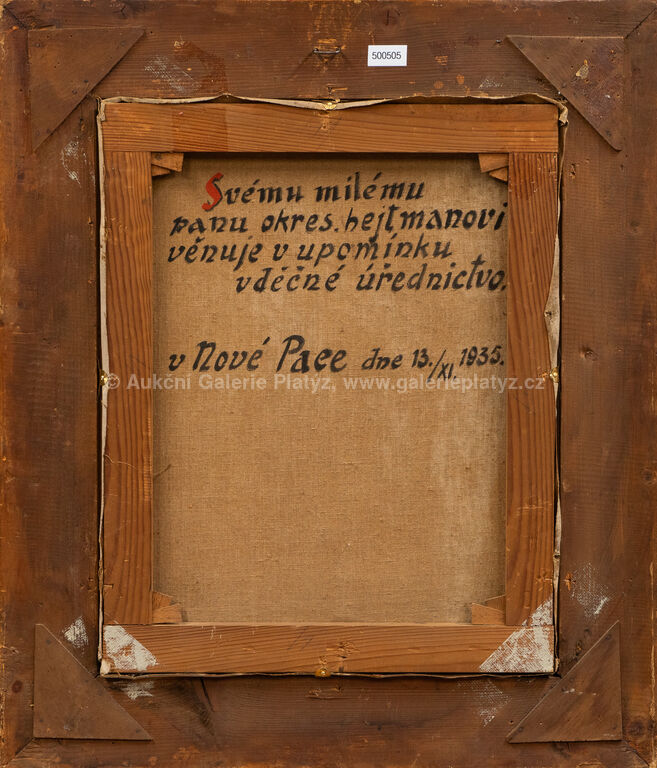 500505
Svému milému
panu okres. hejtmanovi
věnuje v upomínku
vděčné úřednictvo.
v Nové Pace dne 13./XI. 1935.
© Aukční Galerie Platýz, www.galerieplatyz.cz